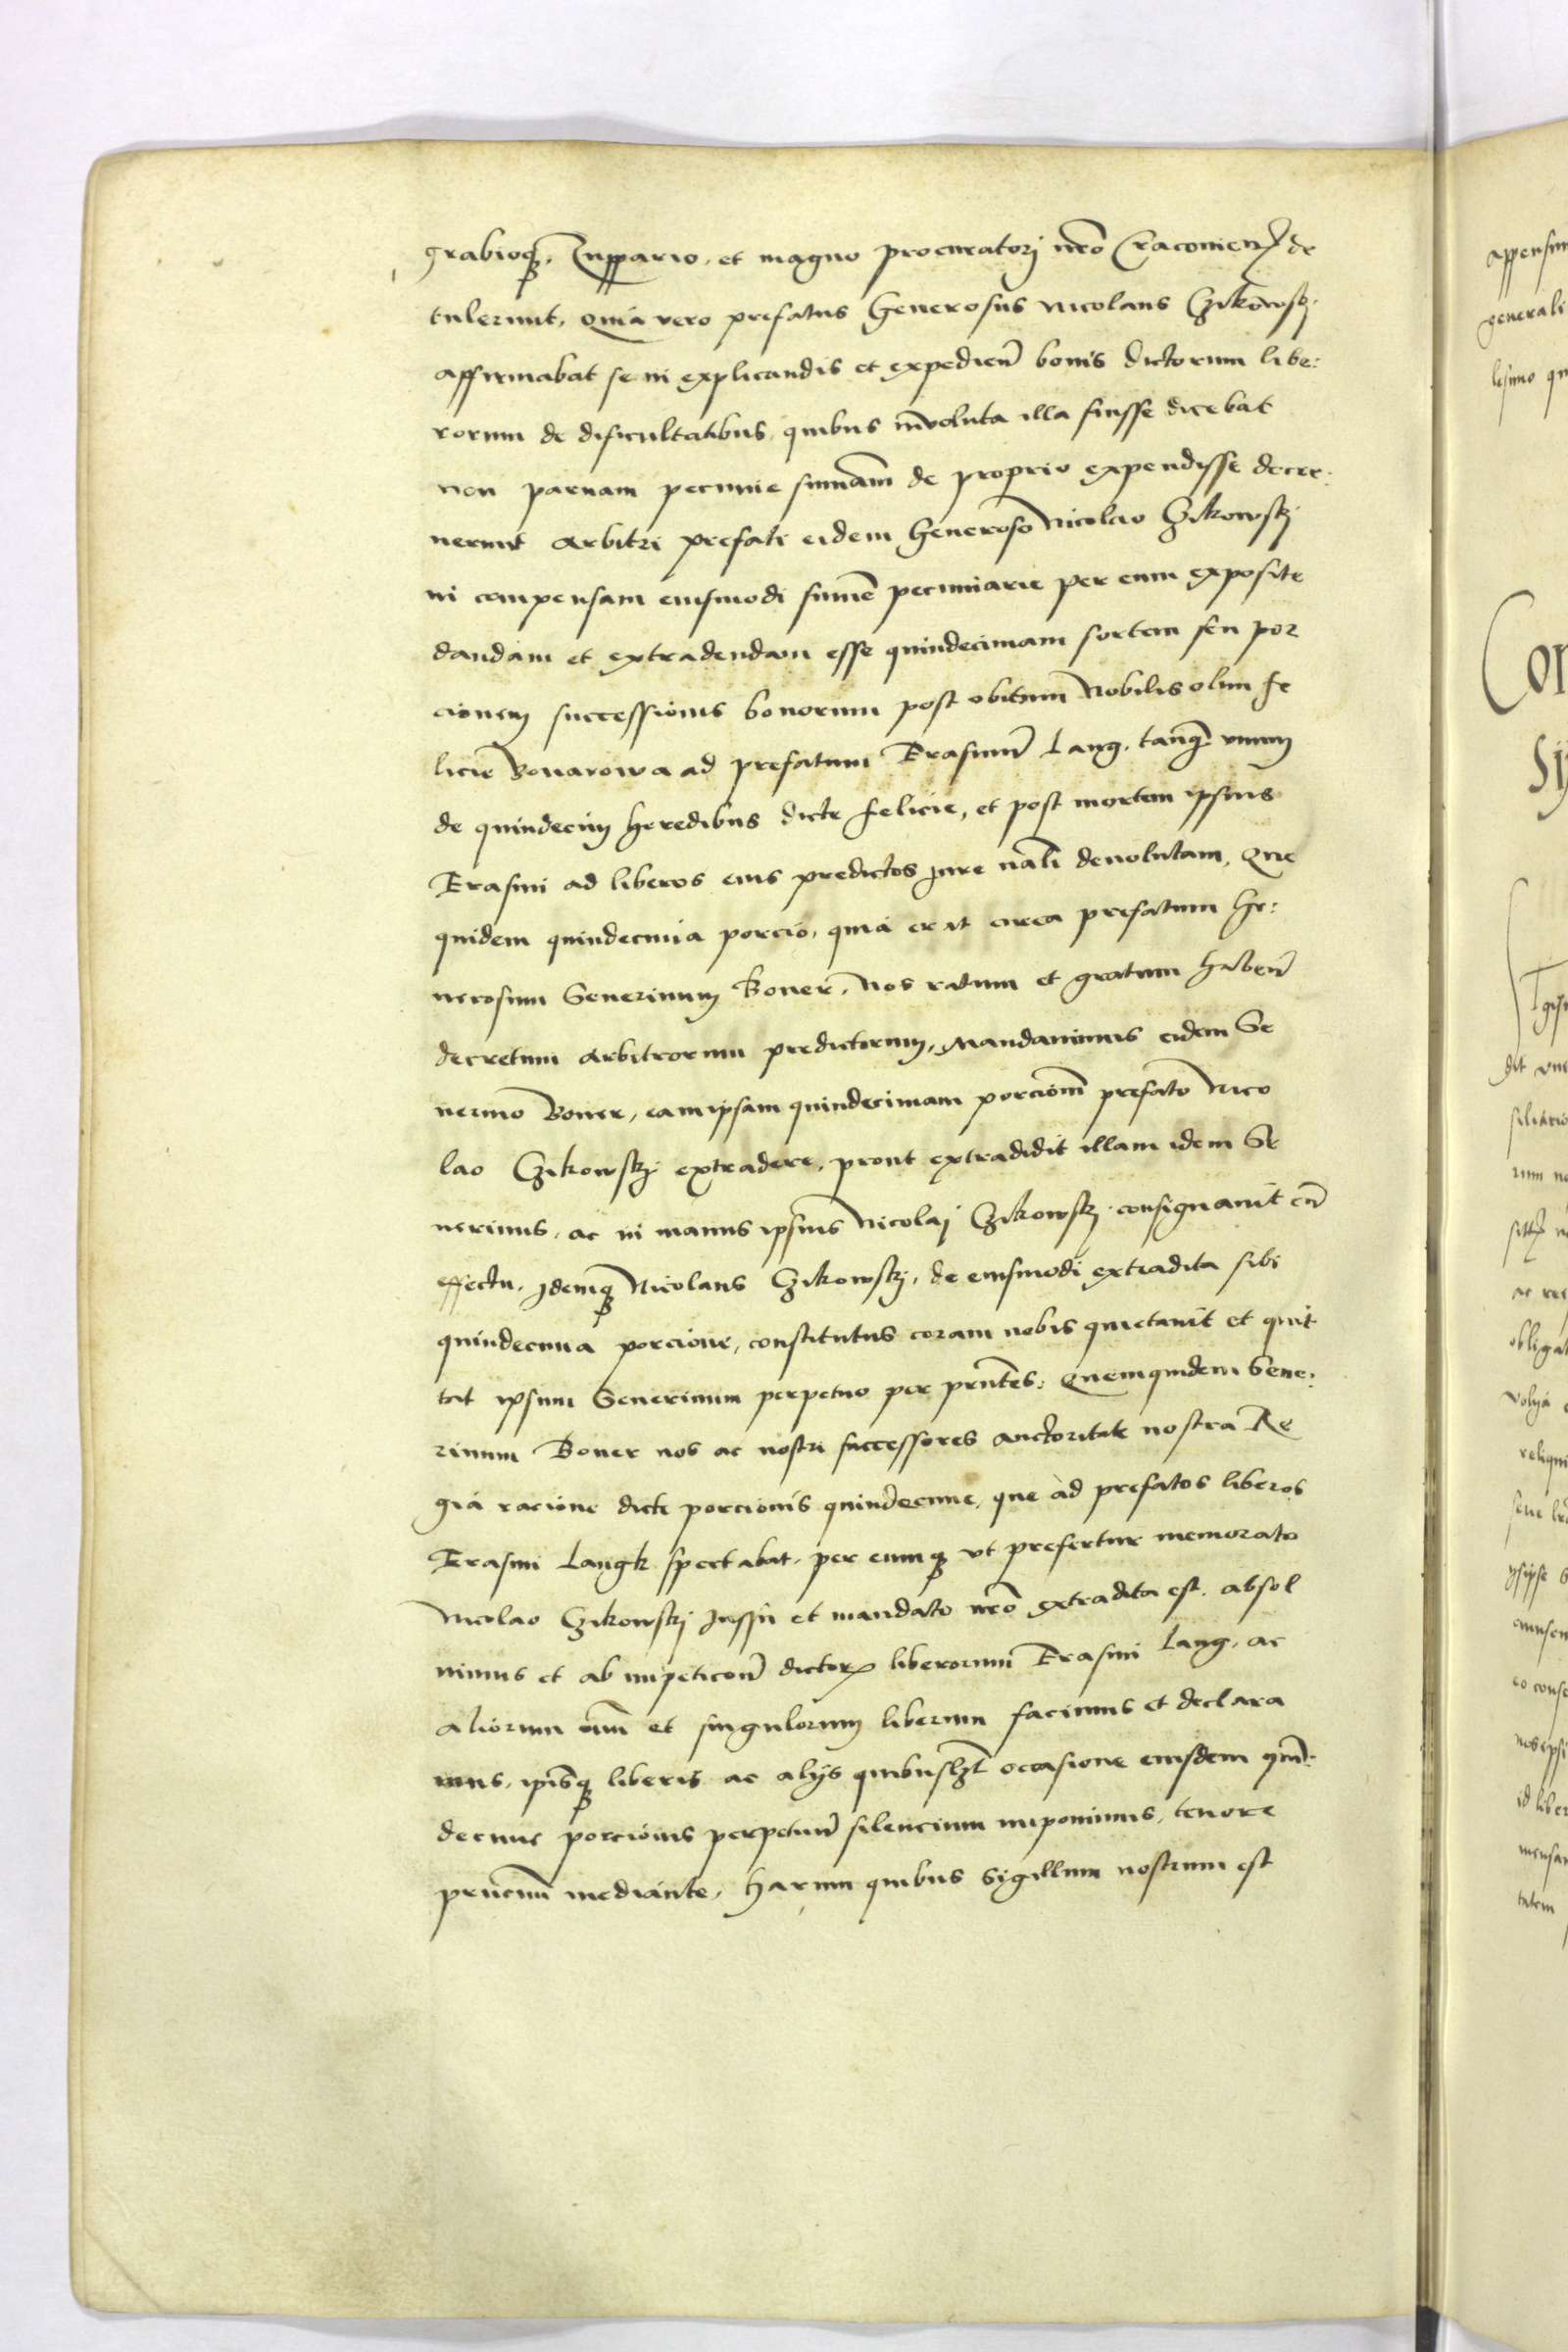 grabioqꝫ, Zuppario, et magno procuratorj nro͞ Cracouien̄ de
tulerunt, quia vero prefatus Generosus Nicolaus Czikowskj
affirmabat se in explicandis et expedien̄ bonis dictorum libe:
rorum de dificultatibus, quibus inuoluta illa fuisse dicebat
non paruam pecunie summam de proprio expendisse decre:
uerunt arbitri prefati eidem Generoso Nicolao Czikowskj
in compensam eiusmodi summe pecuniarie per eum exposite
dandam et extradendam esse quindecimam sortem seu por
cionem successionis bonorum post obitum Nobilis olim Fe
licie Bonarowa ad prefatum Erasmum Lang, tanq̄ vnum
de quindecim heredibus dicte Felicie, et post mortem ipsius
Erasmi ad liberos eius predictos jure na͞li deuolutam, Que
quidem quindecima porcio, quia erat circa prefatum Ge:
nerosum Seuerinum Boner, Nos ratum et gratum haben̄
decretum arbitrorum predictorum, Mandauimus eidem Se
uerino Boner, eam ipsam quindecimam porcionē prefato Nico
lao Czikowskj extradere, prout extradidit illam idem Se
uerinus, ac in manus ipsius Nicolaj Czikowskj consignauit cū
effectu, Idemqꝫ Nicolaus Czikowskj, de eiusmodi extradita sibi
quindecima porcione, constitutus coram nobis quietauit et quit
tat ipsum Seuerinum perpetuo per prn̄tes: Quemquidem Seue:
rinum Boner nos ac nostri successores auctoritate nostra Re
gia racione dicte porcionis quindecime, que ad prefatos liberos
Erasmi Langk spectabat, per eumqꝫ vt prefertur memorato
Nicolao Czikowskj Jussu et mandato nro͞ extradita est, absol
uimus et ab impeticon̄e dictorꝝ liberorum Erasmi Lang, ac
aliorum oīm et singulorum liberum facimus et declara
mus, ipsisqꝫ liberis ac alijs quibuslꝫt occasione eiusdem quin:
decime porcionis perpetuū silencium imponimus, tenore
prn̄cium mediante, Harum quibus Sigillum nostrum est